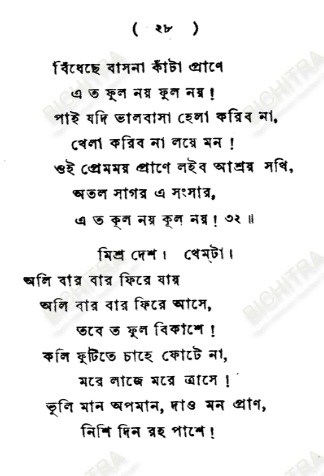 ( ২৮ )
বিঁধেছে বাসনা কাঁটা প্রাণে
এ ত ফুল নয় ফুল নয় !
পাই যদি ভালবাসা হেলা করিব না,
খেলা করিব না লয়ে মন !
ওই প্রেমময় প্রাণে লইব আশ্রয় সখি,
অতল সাগর এ সংসার,
এ ত কূল নয় কূল নয় ! ৩২ ॥
মিশ্র দেশ । খেম্‌টা ।
অলি বার বার ফিরে যায়
অলি বার বার ফিরে আসে,
তবে ত ফুল বিকাশে !
কলি ফুটিতে চাহে ফোটে না,
মরে লাজে মরে ত্রাসে !
ভুলি মান অপমান, দাও মন প্রাণ,
নিশি দিন রহ পাশে !
BICHITRA
BICHITRA
BICHITRA
BICHITRA